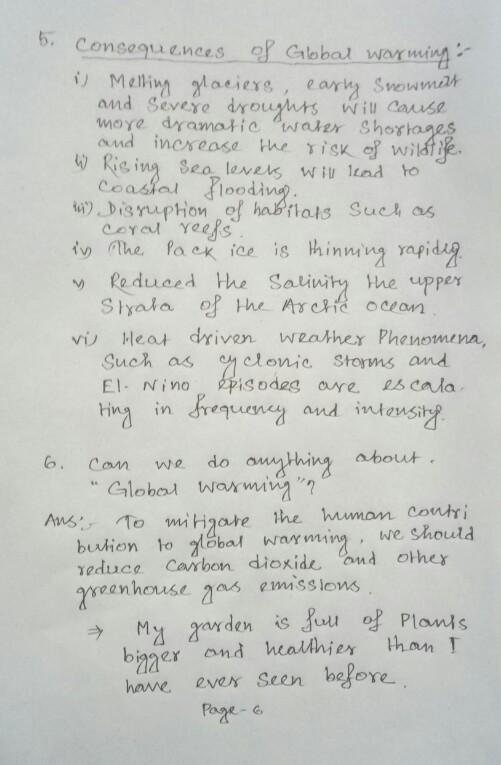 5. Consequences of Global warming :-
i) Melting glaciers, early Snowmelt
and Severe droughts will cause
more dramatic water Shortages
and increase the risk of wildlife.
ii) Rising Sea levels will lead to
Coastal flooding.
iii) Disruption of habitats Such as
coral reefs.
iv) The Pack ice is thinning rapidly.
v) Reduced the Salinity the upper
Strata of the Arctic ocean.
vi) Heat driven weather Phenomena,
Such as cyclonic storms and
El-Nino episodes are escala-
ting in frequency and intensity.
6. Can we do anything about.
"Global warming"?
Ans:- To mitigate the human contri
bution to global warming, we should
reduce Carbon dioxide and other
greenhouse gas emissions.
⇒ My garden is full of Plants
bigger and healthier than I
have ever seen before.
Page-6